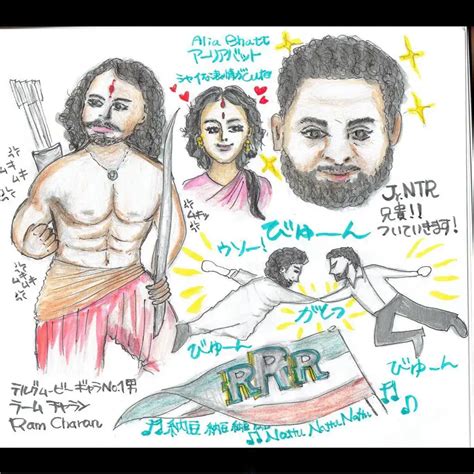 Alia Bhatt
アーリアバット
シャイな表情がcute
Jr.NTR
兄貴!!
ついていきます!
ムキッ
ムキッ
ムキ
ムキ
ムキ
ムキ
びゅーん
ウソー!
がしっ
びゅーん
びゅーん
RRR
テルグムービー ギャラNo.1男
ラーム チャラン
Ram Charan
納豆 納豆 納豆 Naatu Naatu Naatu